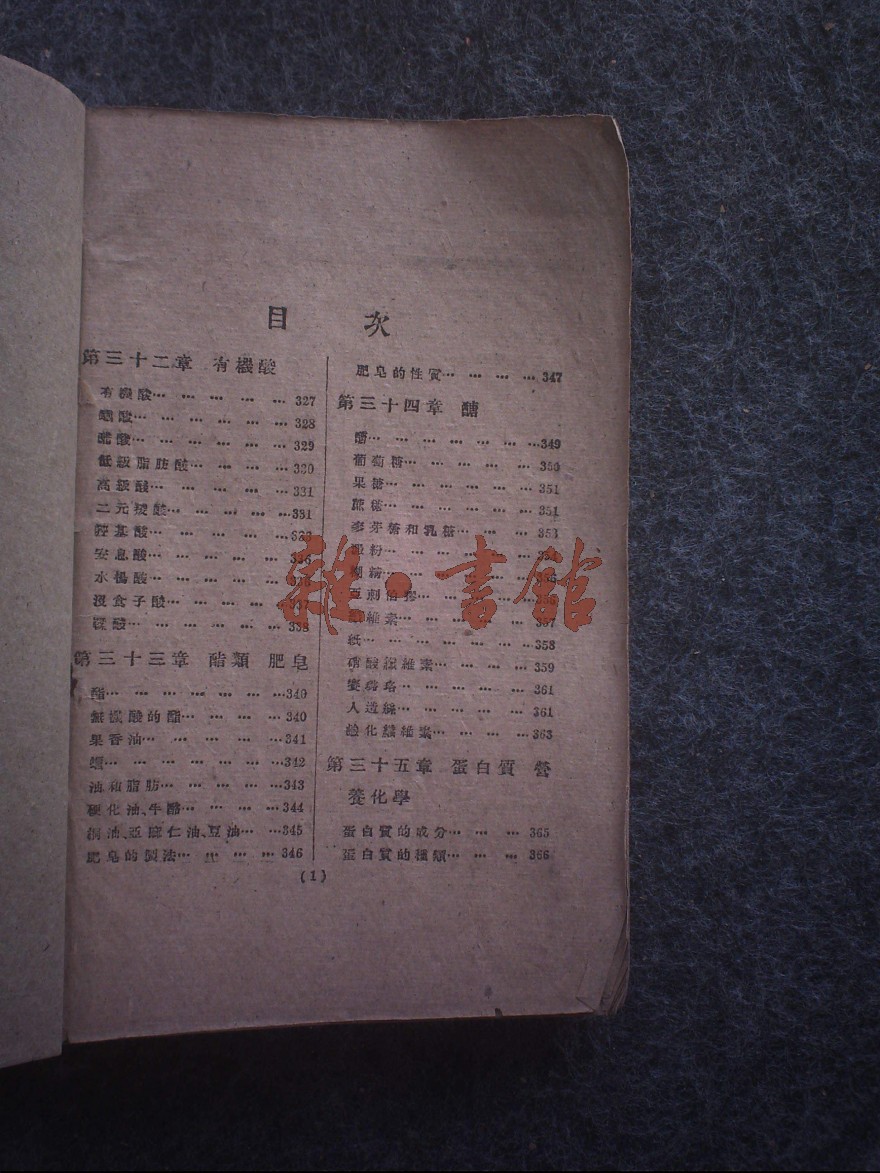 目 次
第三十二章 有機酸
有機酸… … … … …327
蟻酸… … … … …328
醋酸… … … … …329
低級脂肪酸… … … …330
高級酸… … … … …331
二元羧酸… … … …331
羥基酸… … … …
安息酸… … … …
水楊酸… … …
沒食子酸… … …
… … … … …338
第三十三章 酯類 肥皂
酯… … … … … …340
無機酸的酯… … … …340
果香油… … … … …341
蠟… … … … … …342
油和脂肪… … … …343
硬化油、牛酪… … …344
桐油、亞麻仁油、豆油… …345
肥皂的製法… … … …346
肥皂的性質… … … …347
第三十四章 醣
醣… … … … … …349
葡萄糖… … … … …350
果糖… … … … …351
蔗糖… … … … …351
麥芽糖和乳糖… … …353
澱粉… … …
糊精… … …
亞剌伯膠… …
纖維素… … … …357
紙… … … … … …358
硝酸纖維素… … … …359
賽璐珞… … … … …361
人造絲… … … … …361
纖維素… … … …363
第三十五章 蛋白質 營
養化學
蛋白質的成分… … … 365
蛋白質的種類… … … 366
(1)
雜·書館